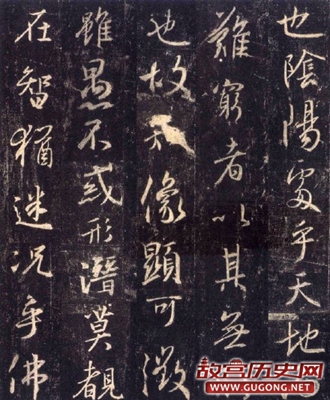 也陰陽處乎天地
難窮者以其無
也故像顯可徵
雖愚不惑形潛莫覩
在智猶迷況乎佛
故宫历史网
WWW.GUGONG.NET